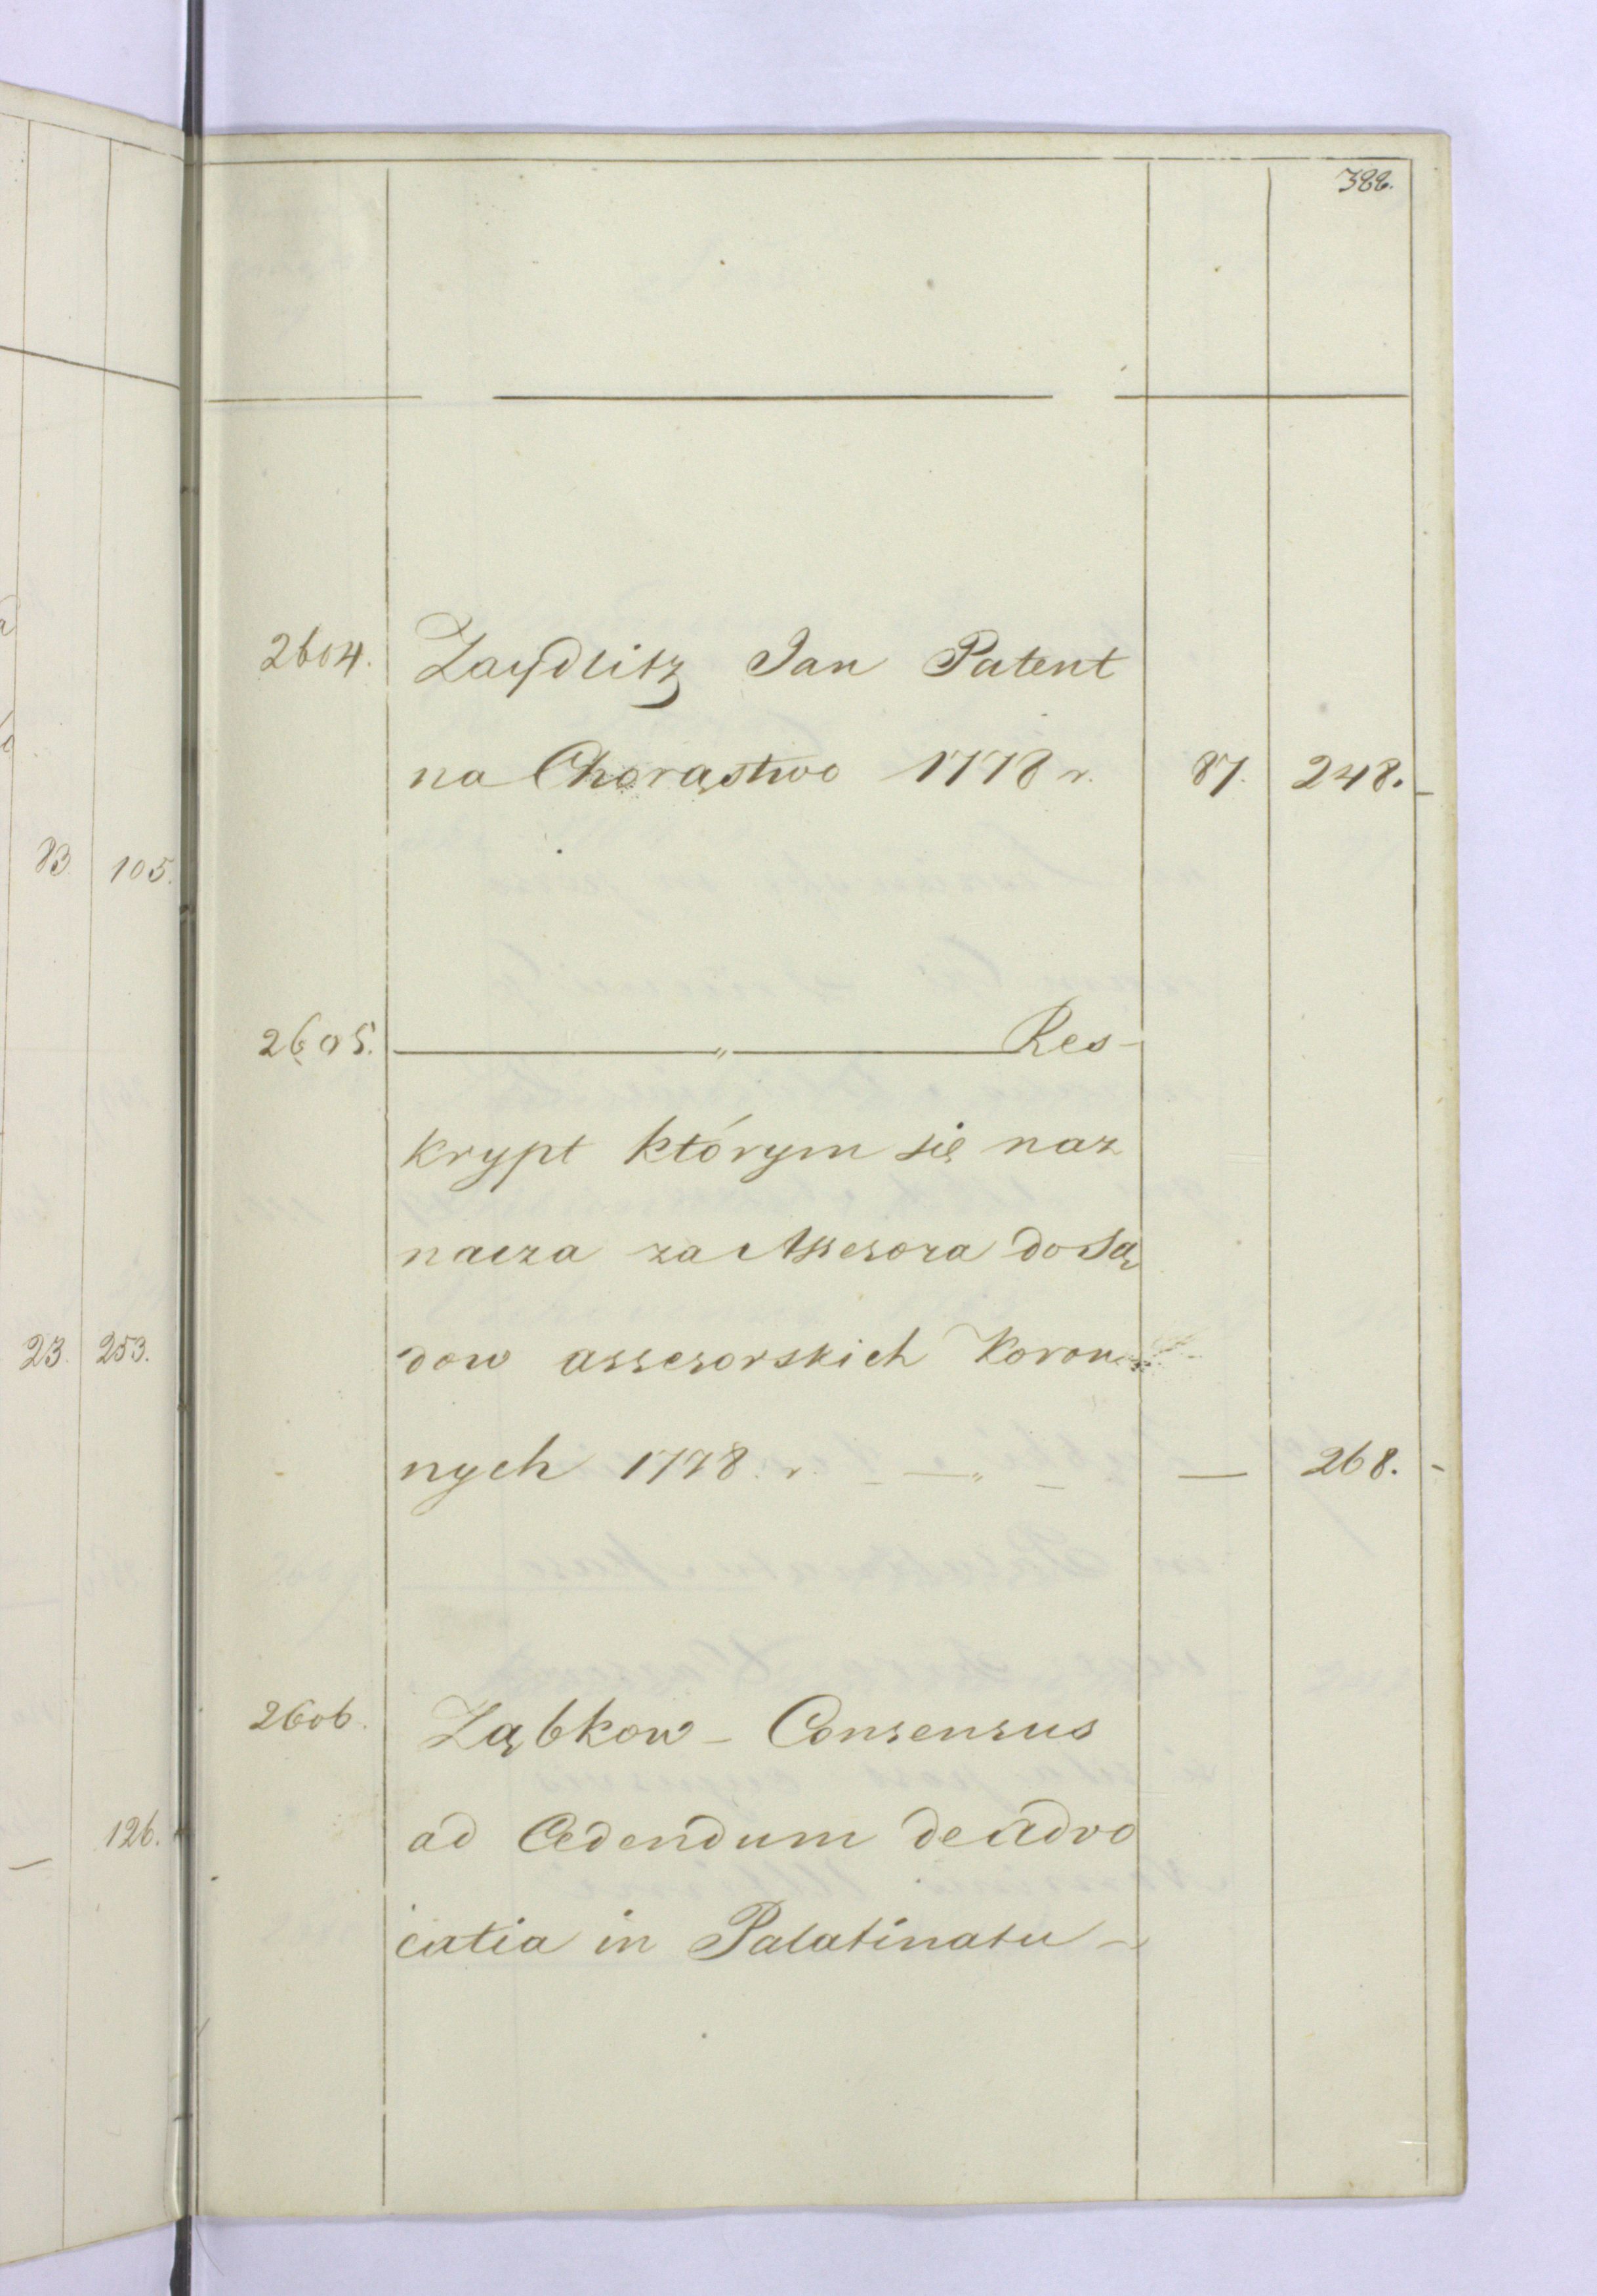 388.
2604. Zaydlitz Jan Patent
na Chorąstwo 1778 r. 87. 248.
83 105.
2605. „ Res-
krypt którym się naz
nacza za Assesora do Są
dow assesorskich Koron
23. 253.
nych 1778. r. — „ — — 268.
2606. Ząbkow - Consensus
ad Cedendum de advo
— 126.
catia in Palatinatu -